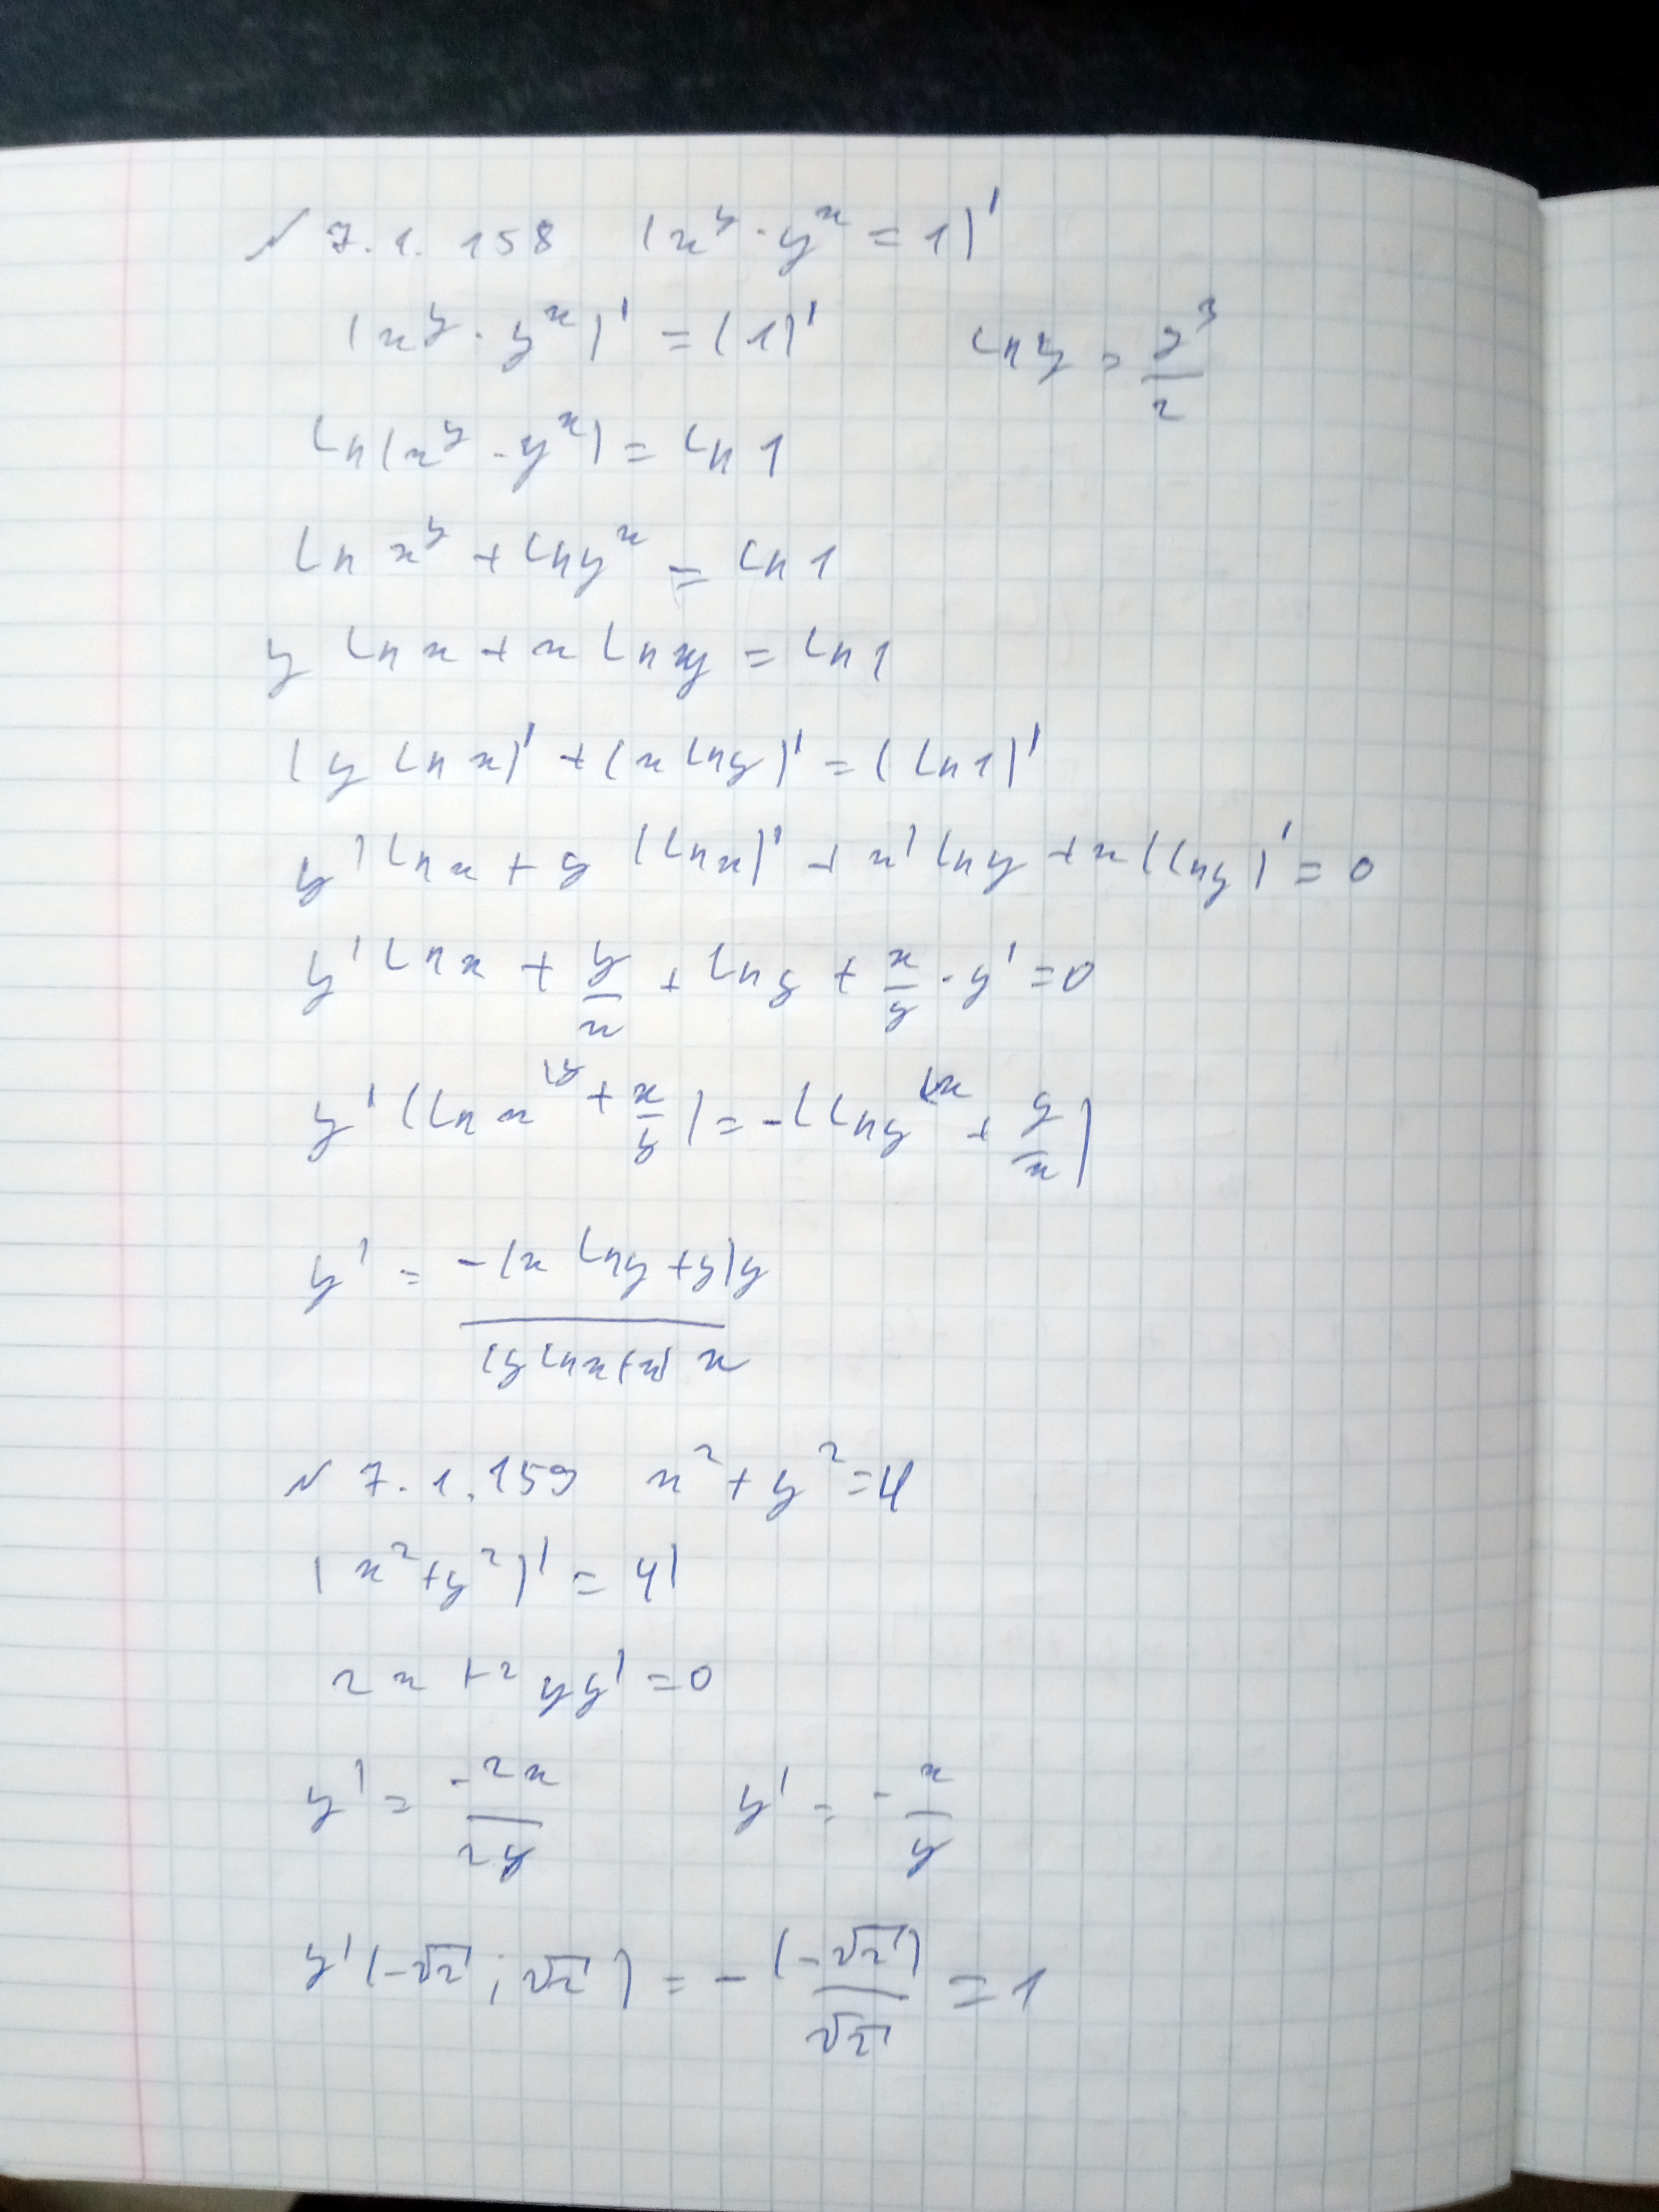 № 7.1.158 (x^y · y^x = 1)'
(x^y · y^x)' = (1)' ln y = y^3/2
ln(x^y · y^x) = ln 1
ln x^y + ln y^x = ln 1
y ln x + x ln y = ln 1
(y ln x)' + (x ln y)' = (ln 1)'
y' ln x + y (ln x)' + x' ln y + x (ln y)' = 0
y' ln x + y/x + ln y + x/y · y' = 0
y' (ln x^(y + x/y) = -(ln y^(x + y/x)
y' = -(x ln y + y)y/(y ln x + x) x
№ 7.1.159 x^2 + y^2 = 4
(x^2 + y^2)' = 4'
2x + 2yy' = 0
y' = -2x/2y y' = -x/y
y'(-√2; √2) = -(-√2)/√2 = 1